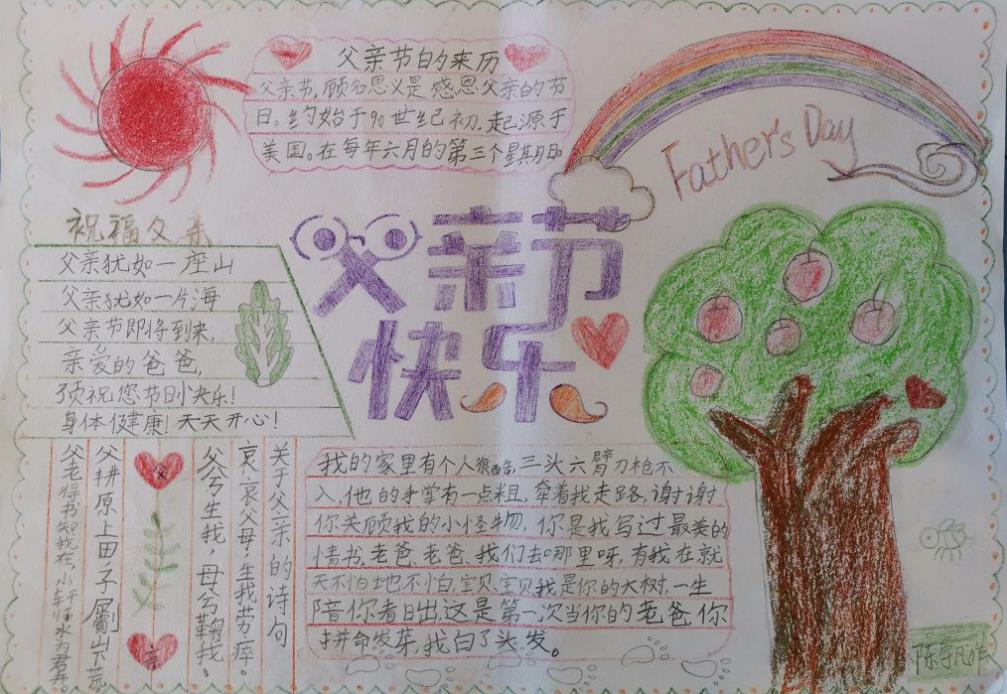 父亲节的来历
父亲节,顾名思义是感恩父亲的节
日。约始于90世纪初,起源于
美国。在每年六月的第三个星期日
Father's Day
祝福父亲
父亲犹如一座山
父亲犹如一片海
父亲节即将到来,
亲爱的爸爸,
预祝您节日快乐!
身体健康!天天开心!
父亲节
快乐
关于父亲的诗句
哀哀父母,生我劳瘁。
父兮生我,母兮鞠我。
父耕原上田,子劚山下荒。
父老得书知我在,小轩临水为君开。
亲
我的家里有个人很酷,三头六臂刀枪不
入,他的手掌有一点粗,牵着我走路,谢谢
你关顾我的小怪物,你是我写过最美的
情书,老爸、老爸、我们去哪里呀,有我在就
天不怕地不怕,宝贝,宝贝我是你的大树,一生
陪你看日出,这是第一次当你的老爸,你
拼命发芽,我白了头发。
陈宇凡作